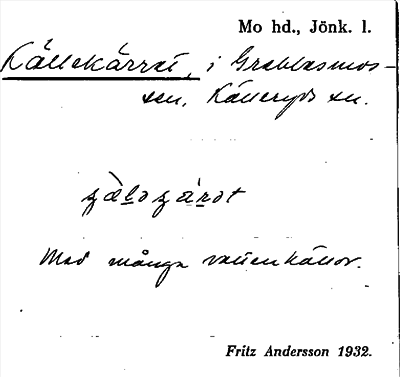 Mo hd., Jönk. l.
Källekärret, i Grabbasmos-
sen, Källeryds sn.
Med många vattenkällor.
Fritz Andersson 1932.